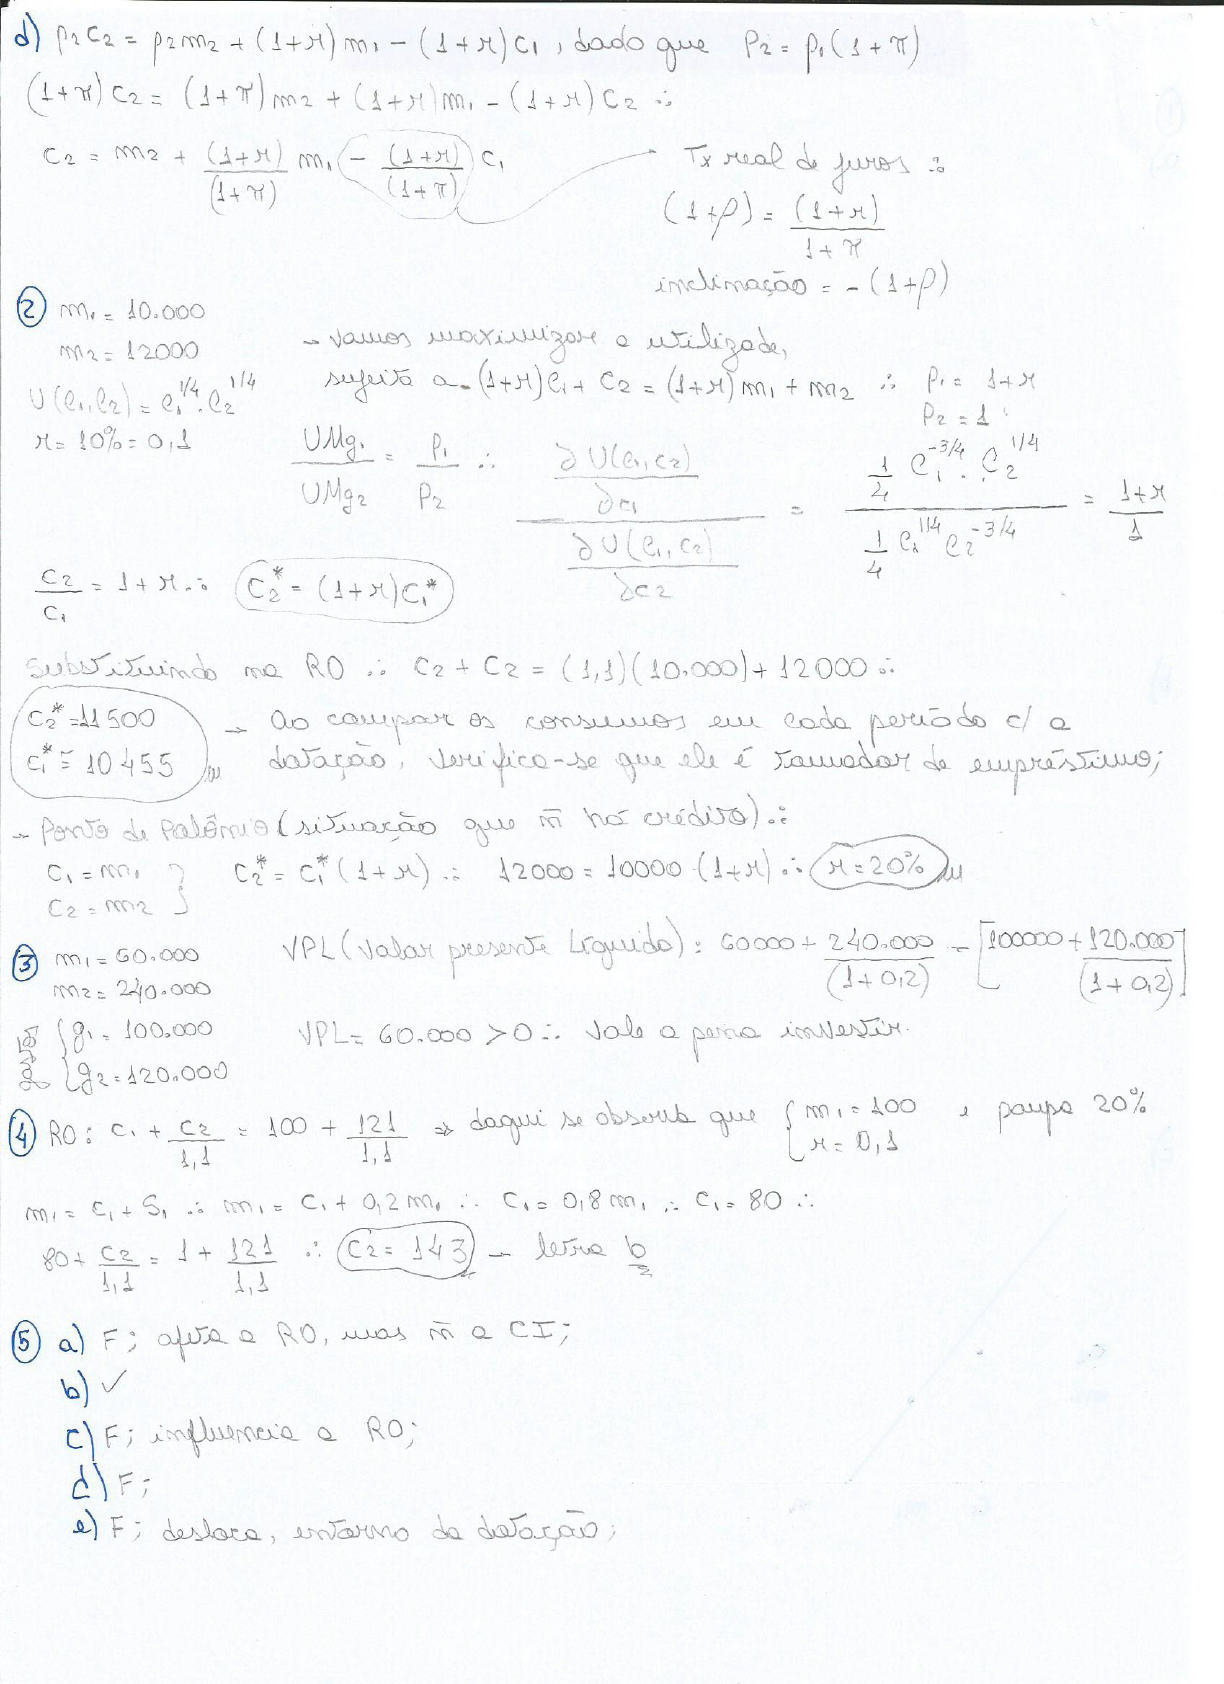 d) p₂c₂ = p₂m₂ + (1+r)m₁ - (1+r)c₁, dado que p₂ = p₁(1+π)
(1+π)c₂ = (1+π)m₂ + (1+r)m₁ - (1+r)c₂ ∴
c₂ = m₂ + (1+r)/(1+π) m₁ - (1+r)/(1+π) c₁
Tx real de juros ∴
(1+ρ) = (1+r)/1+π
inclinação = -(1+ρ)
2 m₁ = 10.000
m₂ = 12000
U(c₁,c₂) = c₁^1/4 . c₂^1/4
r = 10% = 0,1
- vamos maximizar a utilizade,
sujeita a - (1+r)c₁ + c₂ = (1+r)m₁ + m₂ ∴ p₁ = 1+r
p₂ = 1
UMg₁/UMg₂ = p₁/p₂ ∴ (∂U(c₁,c₂)/∂c₁)/(∂U(c₁,c₂)/∂c₂) = (1/4 c₁^-3/4 . c₂^1/4)/(1/4 c₁^1/4 c₂^-3/4) = 1+r/1
c₂/c₁ = 1+r ∴ c₂* = (1+r)c₁*
Substituindo na RO ∴ c₂ + c₂ = (1,1)(10.000) + 12000 ∴
c₂* = 11500
c₁* = 10455
- Ao compar os consumos em cada período c/ a
dotação, verifica-se que ele é tomador de empréstimo;
- Ponto de Polônio (situação que ñ há crédito) ∴
c₁ = m₁
c₂ = m₂
} c₂* = c₁*(1+r) ∴ 12000 = 10000.(1+r) ∴ r = 20%
3 m₁ = 60.000
m₂ = 240.000
{ g₁ = 100.000
g₂ = 120.000
VPL (Valor presente Líquido): 60000 + 240.000/(1+0,2) - [100000 + 120.000/(1+0,2)]
VPL = 60.000 > 0 ∴ Vale a pena investir.
4 RO: c₁ + c₂/1,1 = 100 + 121/1,1 ⇒ daqui se observa que { m₁ = 100 e poupa 20%
r = 0,1
m₁ = c₁ + S₁ ∴ m₁ = c₁ + 0,2m₁ ∴ c₁ = 0,8m₁ ∴ c₁ = 80 ∴
80 + c₂/1,1 = 1 + 121/1,1 ∴ c₂ = 143 - letra b
5 a) F; afeta a RO, mas ñ a CI;
b) ✓
c) F; influencia a RO;
d) F;
e) F; desloca, entorno da dotação;